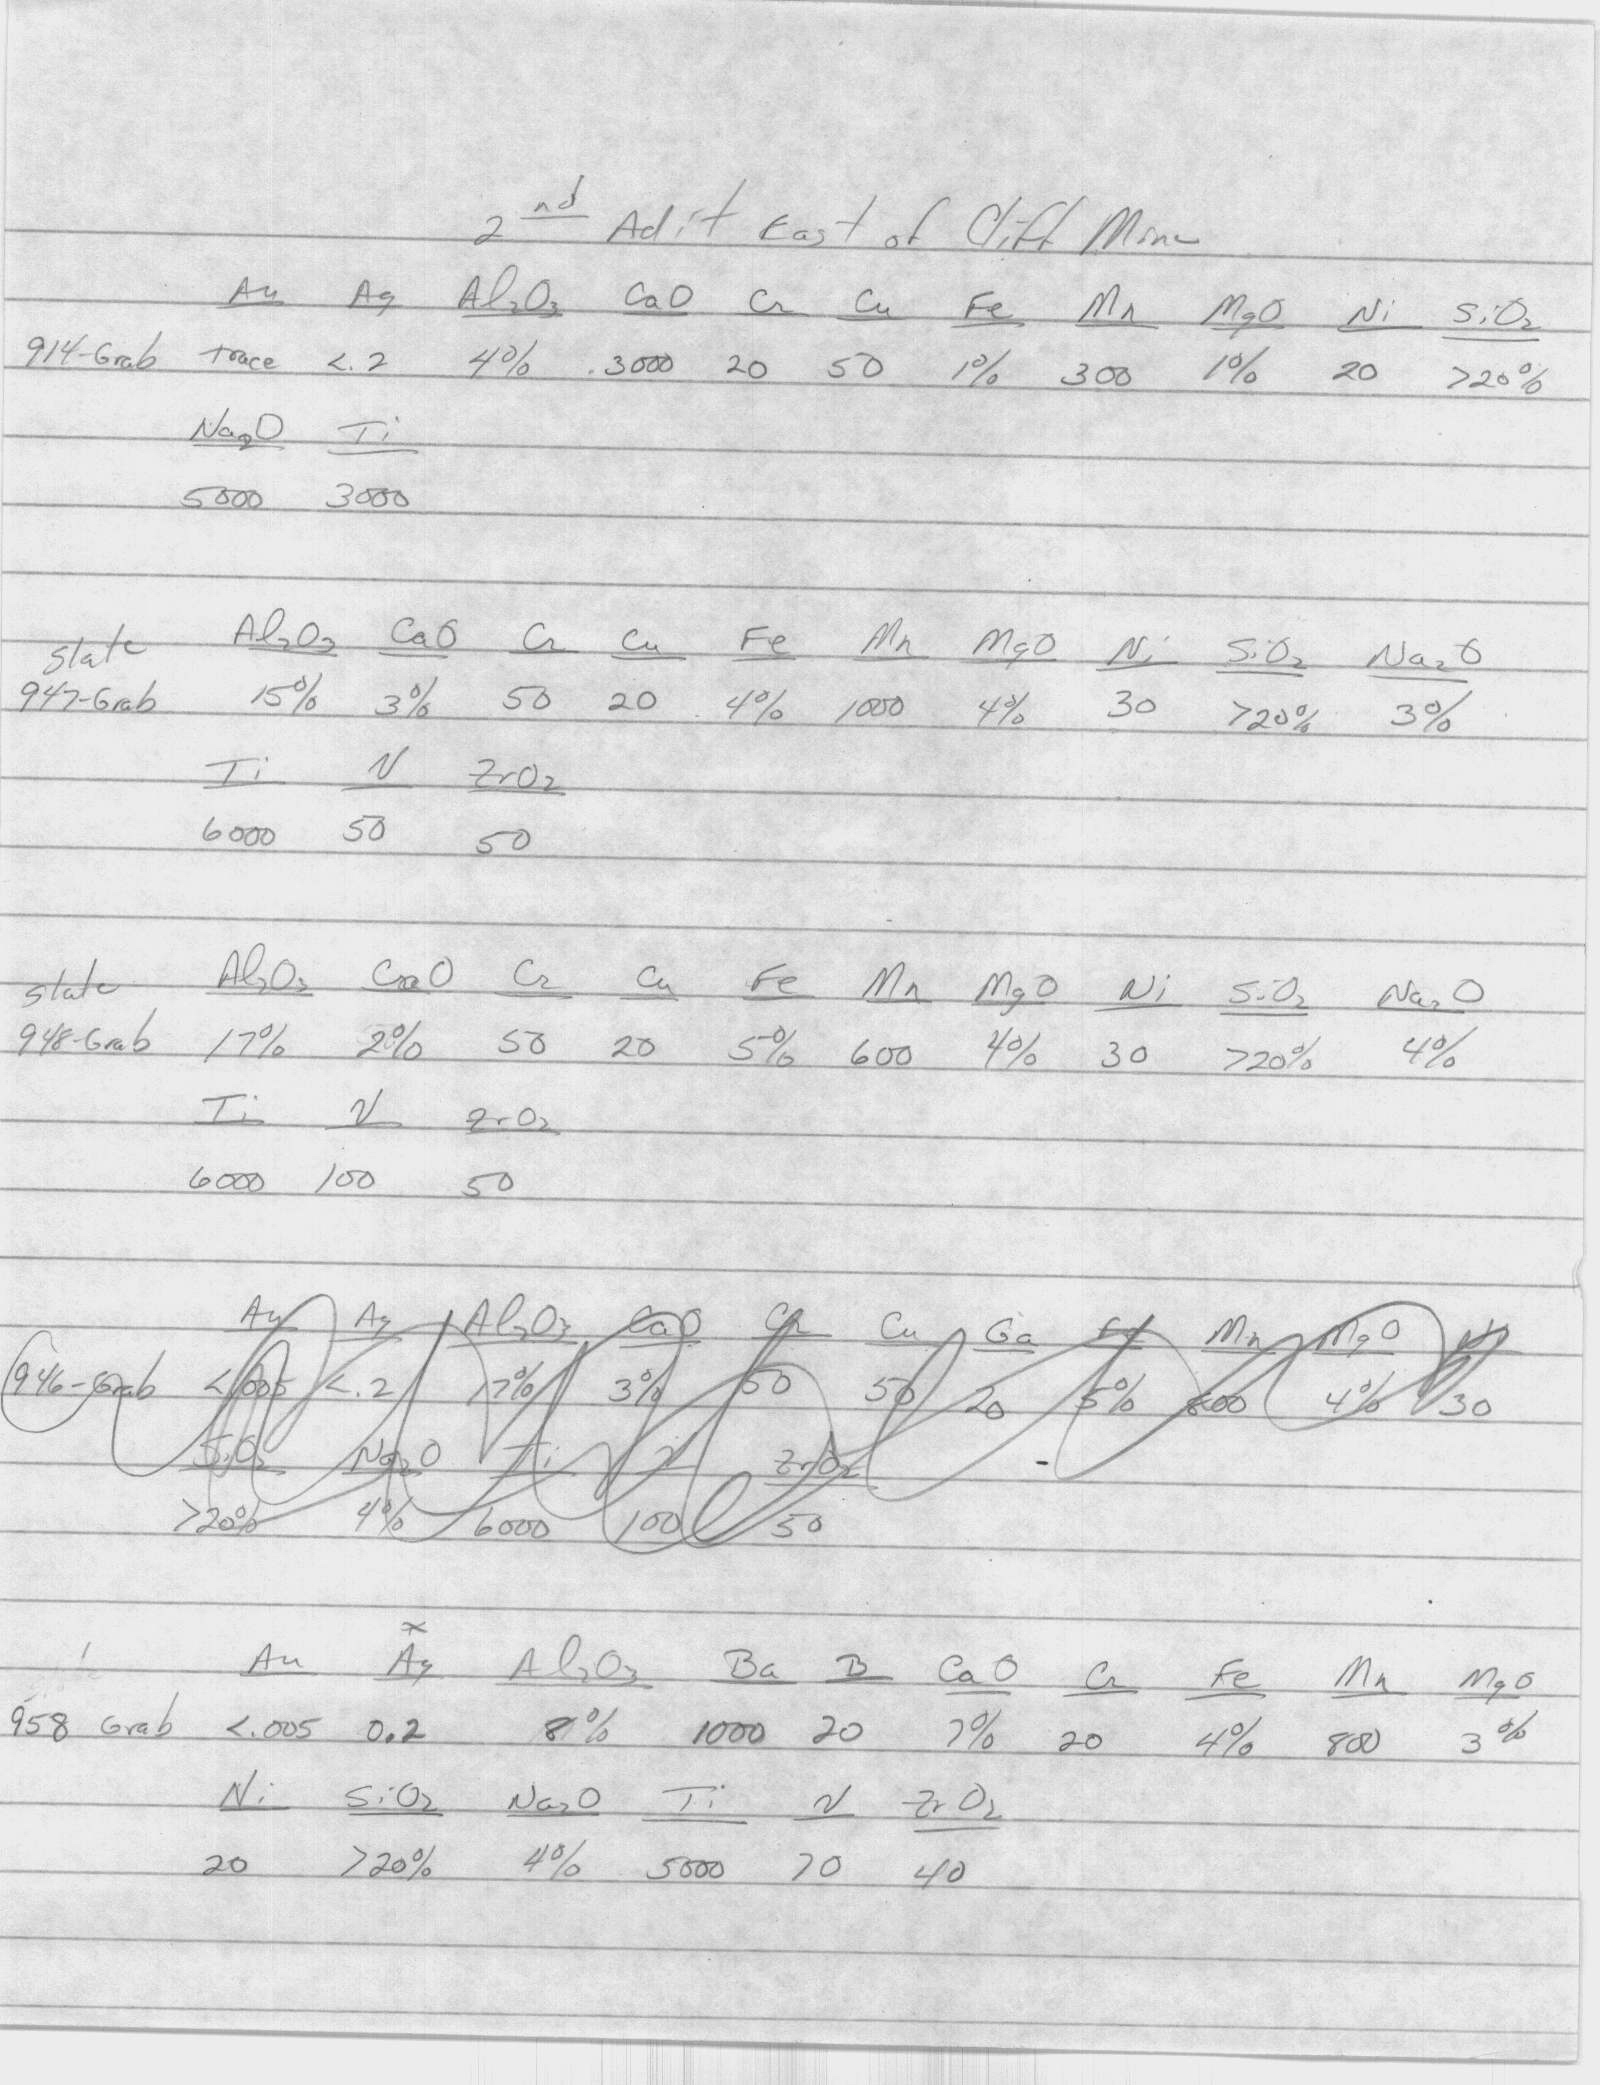 2nd Adit East of Cliff Mine
Au Ag Al2O3 CaO Cr Cu Fe Mn MgO Ni SiO2
914-Grab trace <.2 4% .3000 20 50 1% 300 1% 20 >20%
Na2O Ti
5000 3000
slate Al2O3 CaO Cr Cu Fe Mn MgO Ni SiO2 Na2O
947-Grab 15% 3% 50 20 4% 1000 4% 30 >20% 3%
Ti V ZrO2
6000 50 50
slate Al2O3 CaO Cr Cu Fe Mn MgO Ni SiO2 Na2O
948-Grab 17% 2% 50 20 5% 600 4% 30 >20% 4%
Ti V ZrO2
6000 100 50
Au Ag Al2O3 CaO Cr Cu Ga Fe Mn MgO Ni
946-Grab <.005 <.2 17% 3% 50 50 20 5% 800 4% 30
SiO2 Na2O Ti V ZrO2
>20% 4% 6000 100 50
x
Au Ag Al2O3 Ba B CaO Cr Fe Mn MgO
958 Grab <.005 0.2 8% 1000 20 7% 20 4% 800 3%
Ni SiO2 Na2O Ti V ZrO2
20 >20% 4% 5000 70 40